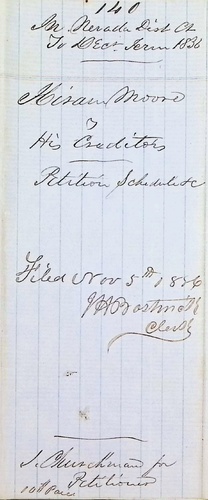 140
In Nevada Dist Ct
To Dect Term 1856
Hiram Moore
v
His Creditors
Petition Schedule &c
Filed Nov 5th 1856
Clerk
J. Churchman for
Petitioner
10th Page